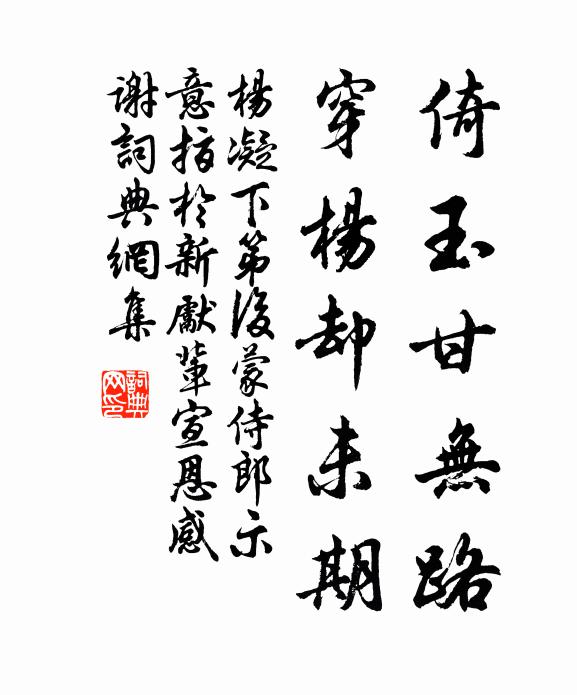 倚玉甘無路
穿楊却未期
楊凝下第後蒙侍郎示
意指於新獻輩宣恩感
謝詞典網集
詞典
网印